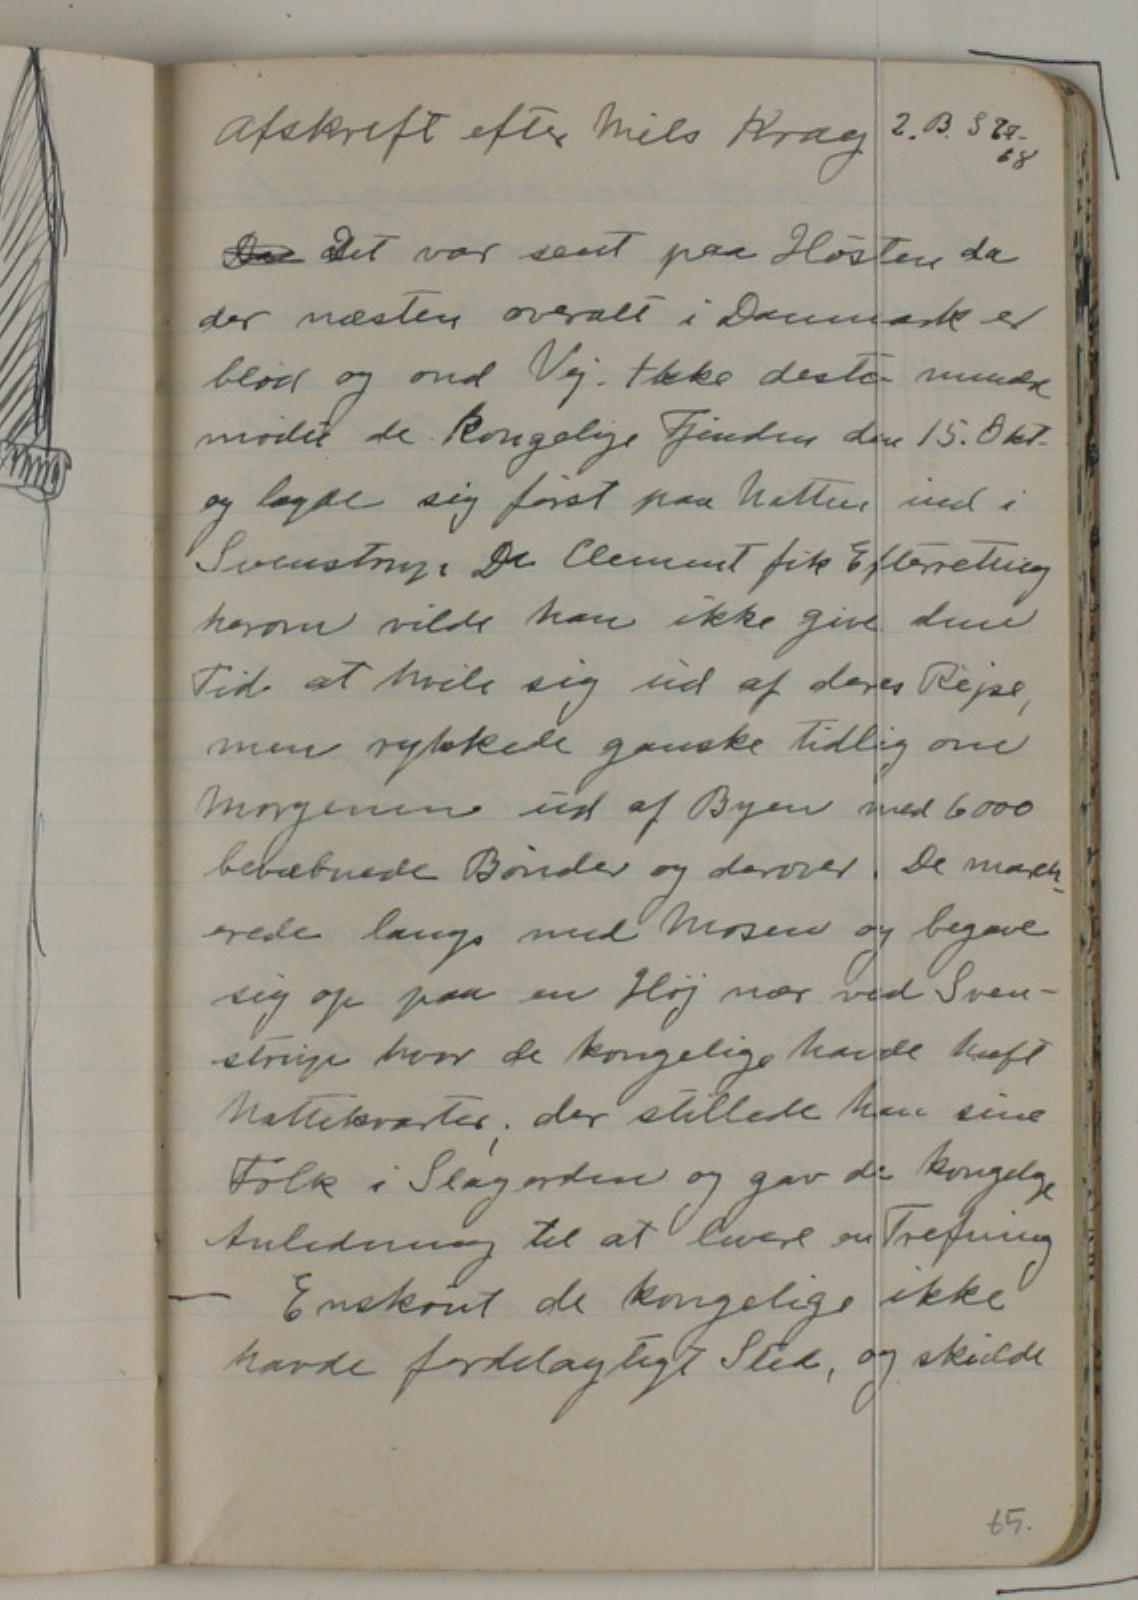 Afskreft efter Niels Krag 2. B. S 67-
68
Det var sent paa Høsten da
der næsten overalt i Danmark er
blød og ond Vej. Ikke desto mindre
mødte de Kongelige Fjenden den 15. Okt.
og lagde sig først paa Natten ind i
Svenstrup. Da Clement fik Efterretning
herom vilde han ikke give dem
Tid at hvile sig ud af deres Rejse,
men rykkede ganske tidlig om
Morgenen ud af Byen med 6000
bevæbnede Bønder og derover. De march-
erede langs med Mosen og begave
sig op paa en Høj nær ved Sven-
strup hvor de kongelige havde haft
Nattekvarter; der stillede han sine
Folk i Slagorden og gav de kongelige
Anledning til at levere en Trefning
— Enskønt de kongelige ikke
havde fordelagtigt Sted, og skulde
65.